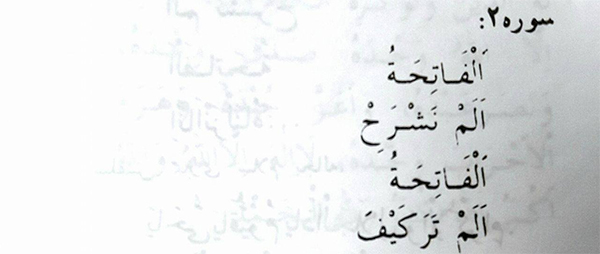 سوره ۲:
اَلْفَاتِحَةُ
اَلَمْ نَشْرَحْ
اَلْفَاتِحَةُ
اَلَمْ تَرَكَيْفَ